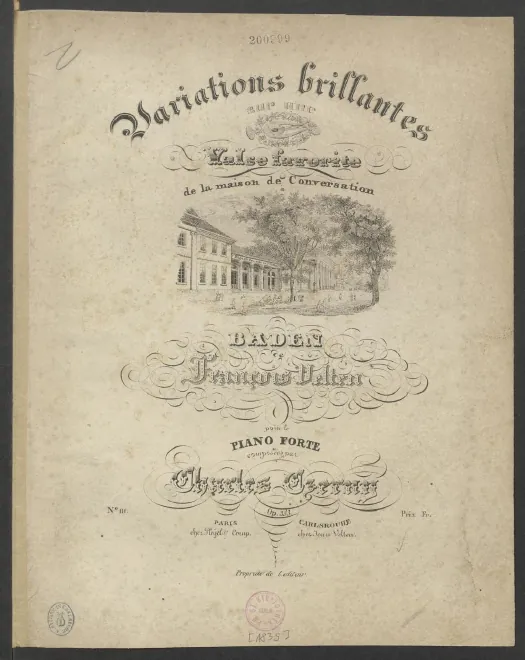 200299
Variations brillantes
sur une
Valse favorite
de la maison de Conversation
à
BADEN
de
François Velten
pour le
PIANO FORTE
composées par
Charles Czerny
Op.
Nº
Prix Fr.
PARIS
CARLSROUHE
chez Pleyel & Comp.
chez Jean Velten.
Propriété de l'editeur
[1835]